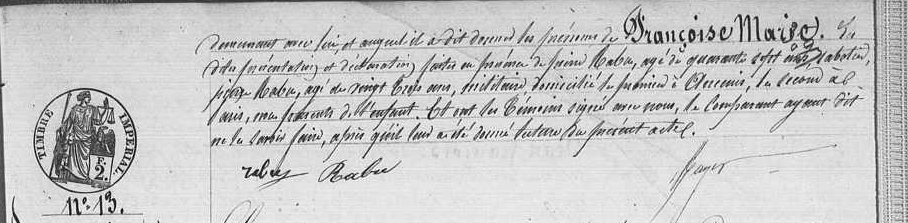 demeurant avec lui, et auquel il a dit donner les prénoms de Françoise Marie. Les
dites présentation et déclaration faites en présence de Pierre Rabu, agé de quarante sept ans, sabotier,
pierre Rabu, agé de vingt trois ans, militaire, domiciliés le premier à Ancenis, le second à
Paris, non parents de l'enfant. Et ont les témoins signé avec nous, le comparant ayant dit
ne le savoir faire, après qu'il leur a été donné lecture du présent acte.
Rabu
TIMBRE IMPERIAL
F.
2.
N° 13.